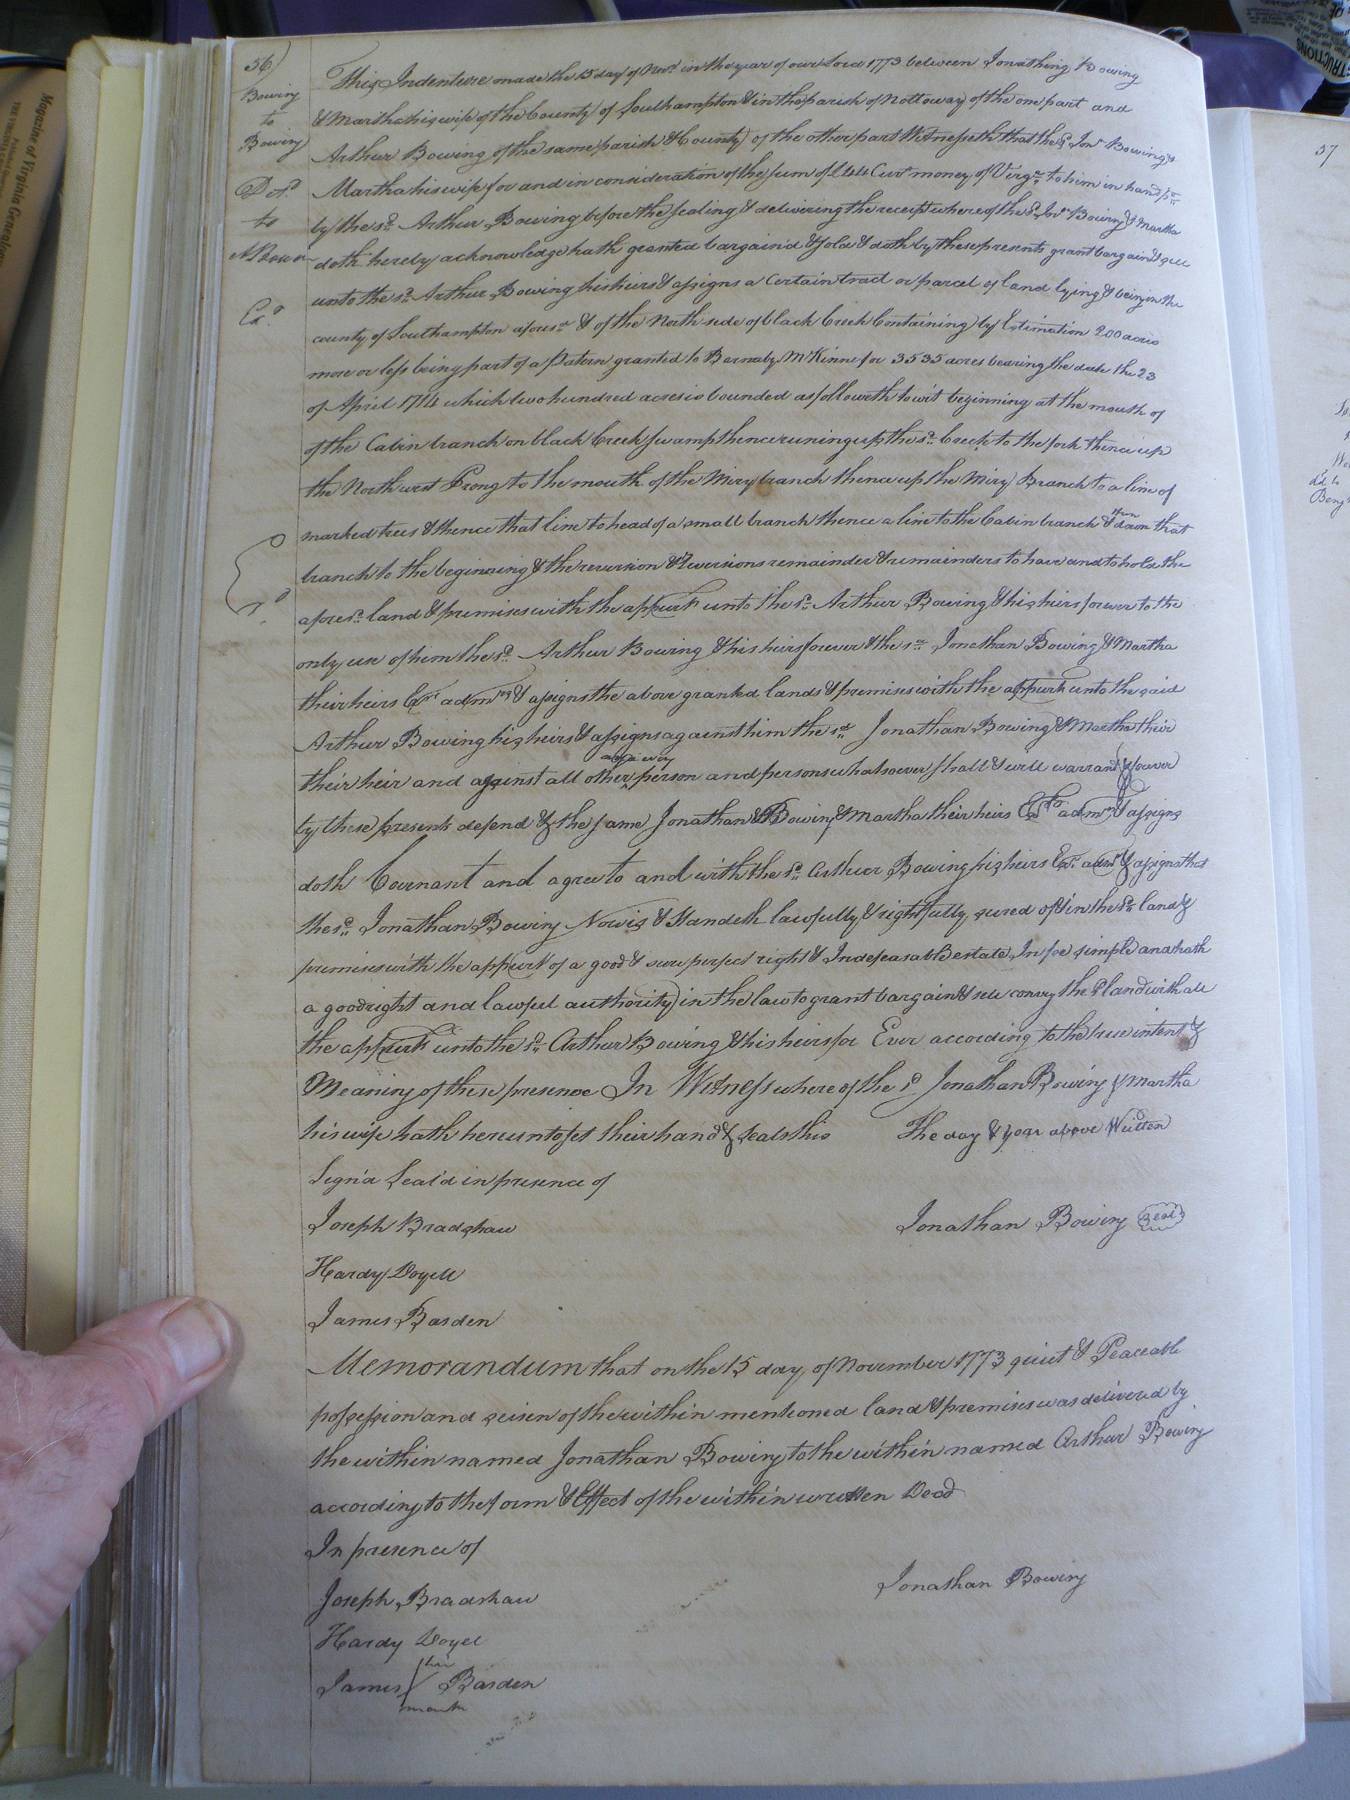 56)
Bowing
to
Bowing
Ded.
to
A Bowin
Ex.d
This Indenture made the 15 day of Nov.r in the year of our Lord 1773 between Jonathing Bowing
& Martha his wife of the County of Southampton & in the parish of Nottoway of the one part and
Arthur Bowing of the same parish & County of the other part Witnesseth that the s.d Jon.n Bowing &
Martha his wife for and in consideration of the sum of £44 Cur.t money of Virg.a to him in hand p.d
by the s.d Arthur Bowing before the sealing & delivering the receipt where of the s.d Jn.o Bowing & Martha
doth hereby acknowledge hath granted bargain'd & sold & doth by these presents grant bargain & sell
unto the s.d Arthur Bowing his heirs & assigns a Certain tract or parcel of land lying & being in the
county of Southampton afores.d & of the North side of black Creek Containing by Estimation 200 acres
more or less being part of a Patern granted to Barnaby McKinne for 3535 acres bearing the date the 23
of April 1714 which two hundred acres is bounded as followeth to wit beginning at the mouth of
of the Cabin branch on black Creek swamp thence runing up the s.d Creek to the fork thence up
the North west Prong to the mouth of the Miry branch thence up the Miry Branch to a line of
marked trees & thence that line to head of a small branch thence a line to the Cabin branch & then down that
branch to the beginning & the reversion & Reversions remainder & remainders to have and to hold the
afores.d land & premises with the appurts unto the s.d Arthur Bowing & his hiers forever to the
only use of him the s.d Arthur Bowing & his heirs forever & the s.d Jonathan Bowing & Martha
their heirs Ex.r adm.rs & assigns the above granted lands & premises with the appurts unto the said
Arthur Bowing his heirs & assigns against him the s.d Jonathan Bowing & Martha their
their heir and against all other person and persons whatsoever shall & will warrant & forever
by these presents defend & the same Jonathan & Bowing & Martha their heirs Ex.rs adm.rs & assigns
doth Covenant and agree to and with the s.d Arthur Bowing his heirs Ex.r adm.r & assigns that
the s.d Jonathan Bowing Now is & Standeth lawfully & rightfully seized of & in the s.d land &
premises with the appurts of a good & sure perfect right & Indefeasable estate In fee simple and hath
a good right and lawful authority in the law to grant bargain & sell convey the s.d land with all
the appurts unto the s.d Arthur Bowing & his heirs for Ever according to the true intent &
Meaning of these presence In Witness where of the s.d Jonathan Bowing & Martha
his wife hath hereunto set their hand & seals this The day & year above Written
Sign'd Seal'd in presence of
Joseph Bradshaw Jonathan Bowing Seal
Hardy Doyell
James Barden
Memorandum that on the 15 day of November 1773 quiet & Peaceable
possession and seisen of the within mentioned land & premises was delivered by
the within named Jonathan Bowing to the within named Arthur Bowing
according to the form & Effect of the within written Deed
In presence of
Jonathan Bowing
Joseph Bradshaw
Hardy Doyel
his
James Barden
mark
57
Magazine of Virginia Genealogy